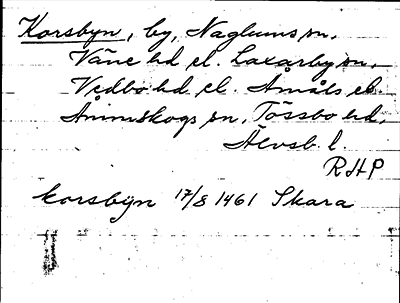 Korsbyn, by, Naglums sn,
Väne hd el. Laxarby sn,
Vedbo hd el. Åmåls el.
Ånimskogs sn, Tössbo hd,
Älvsb. l.
RHP
korsbyn 17/8 1461 Skara